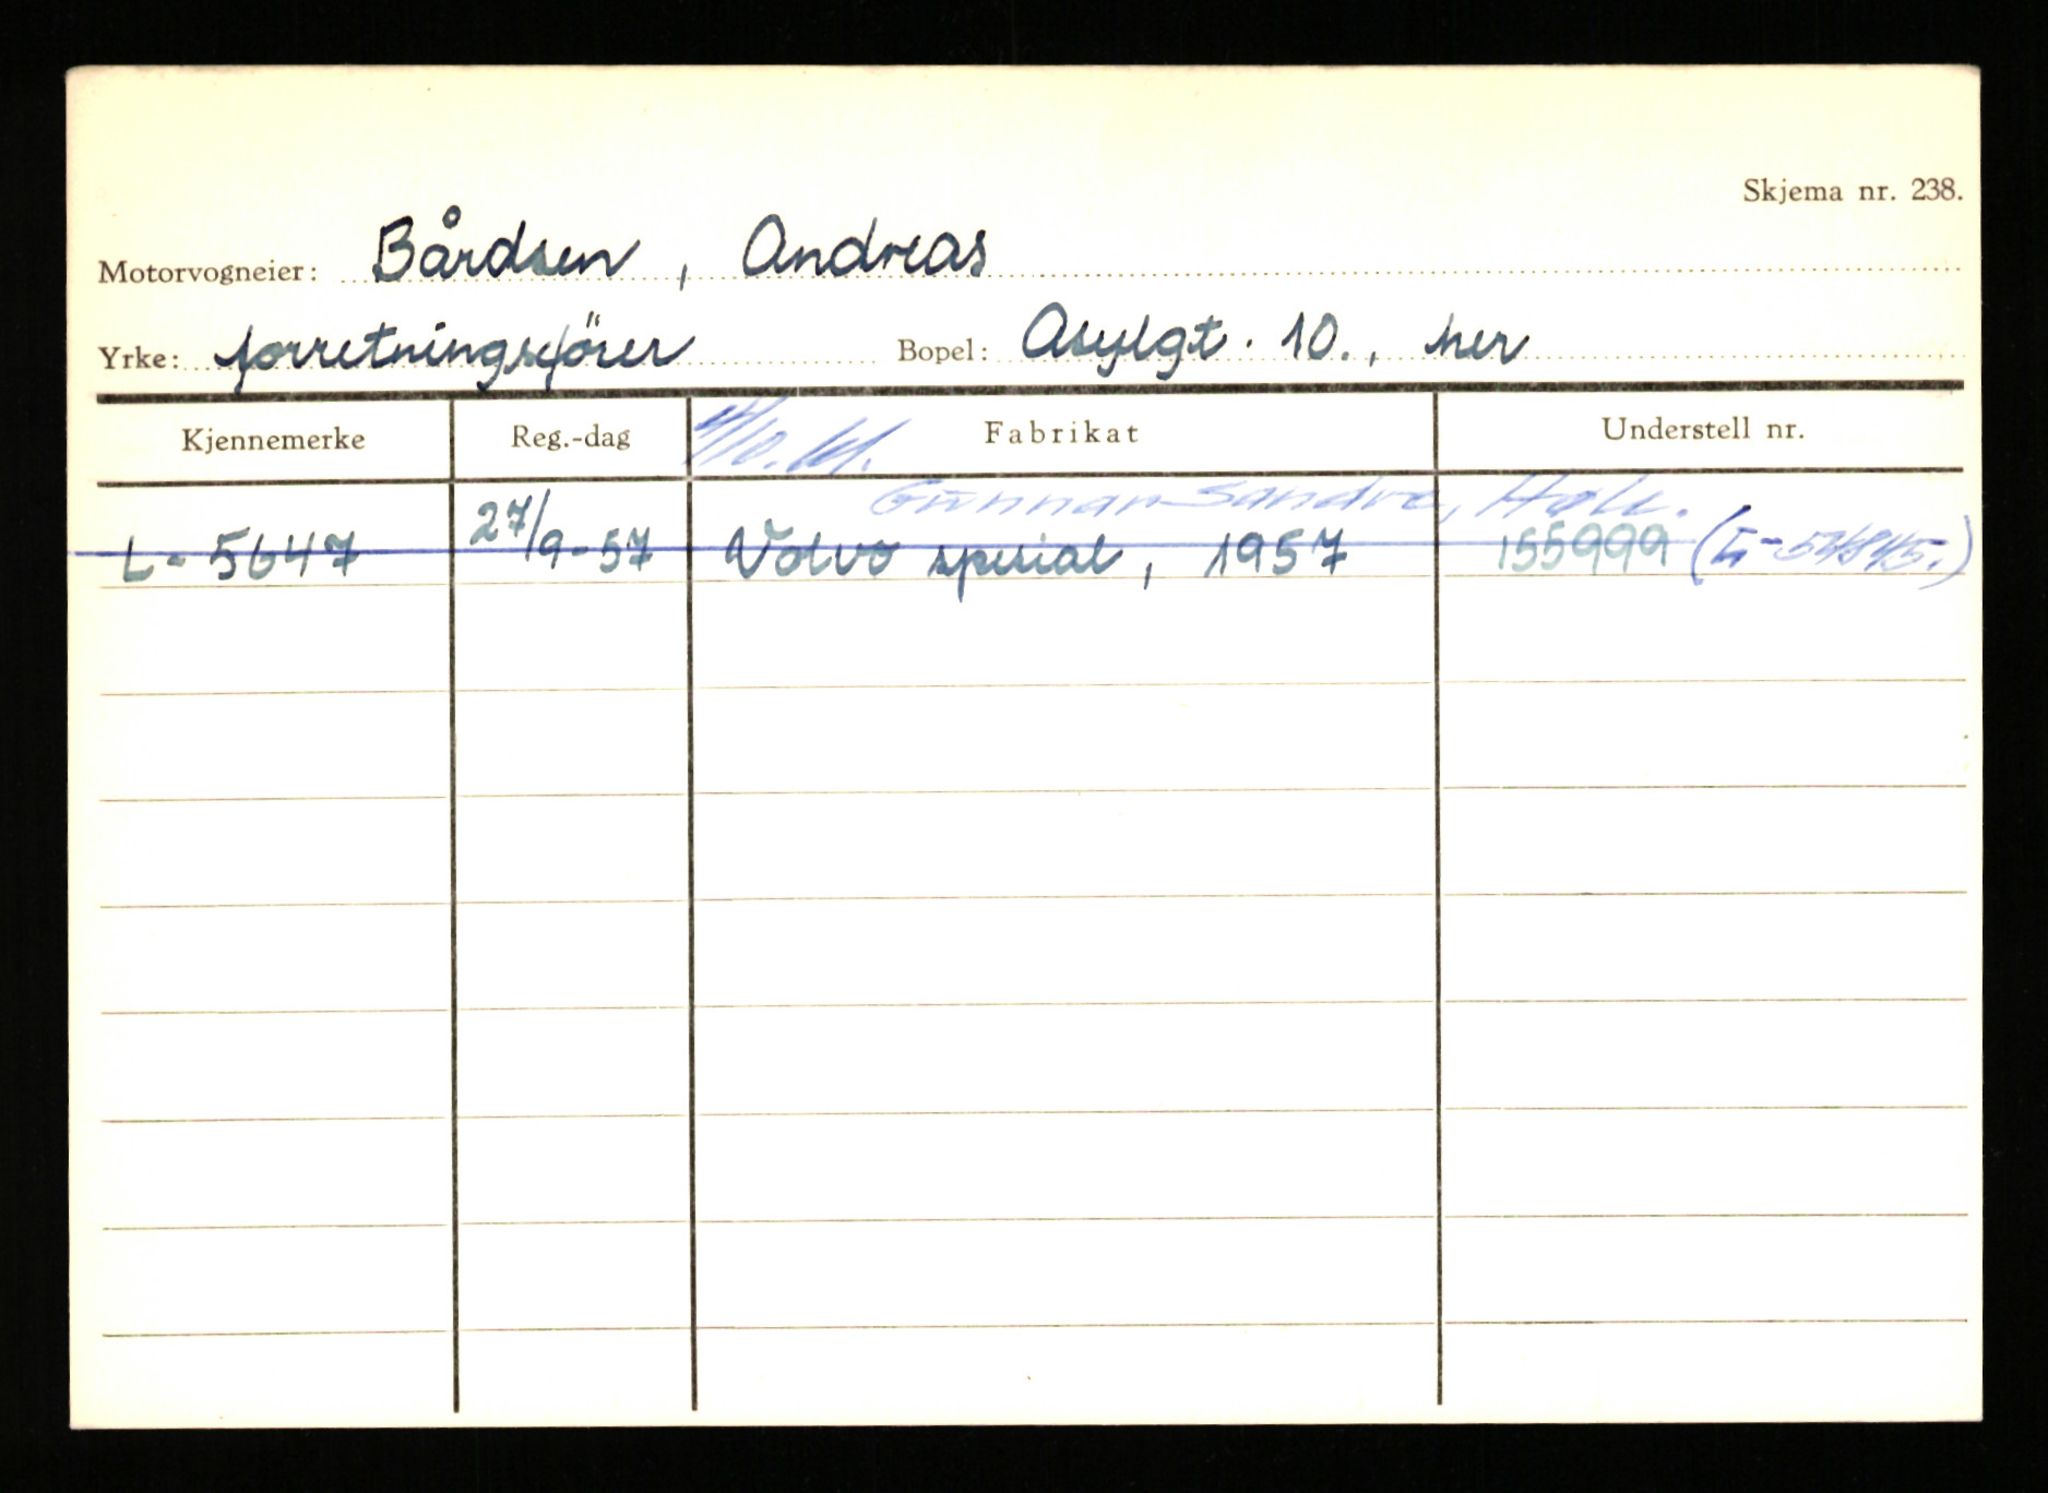 Skjema nr. 238.
Motorvogneier: Bårdsen, Andreas
Yrke: forretningsförer Bopel: Asylgt. 10., her
Kjennemerke Reg.-dag Fabrikat Understell nr.
Gunnar Sandve,
L-5647 27/9-57 Volvo spesial, 1957 155999